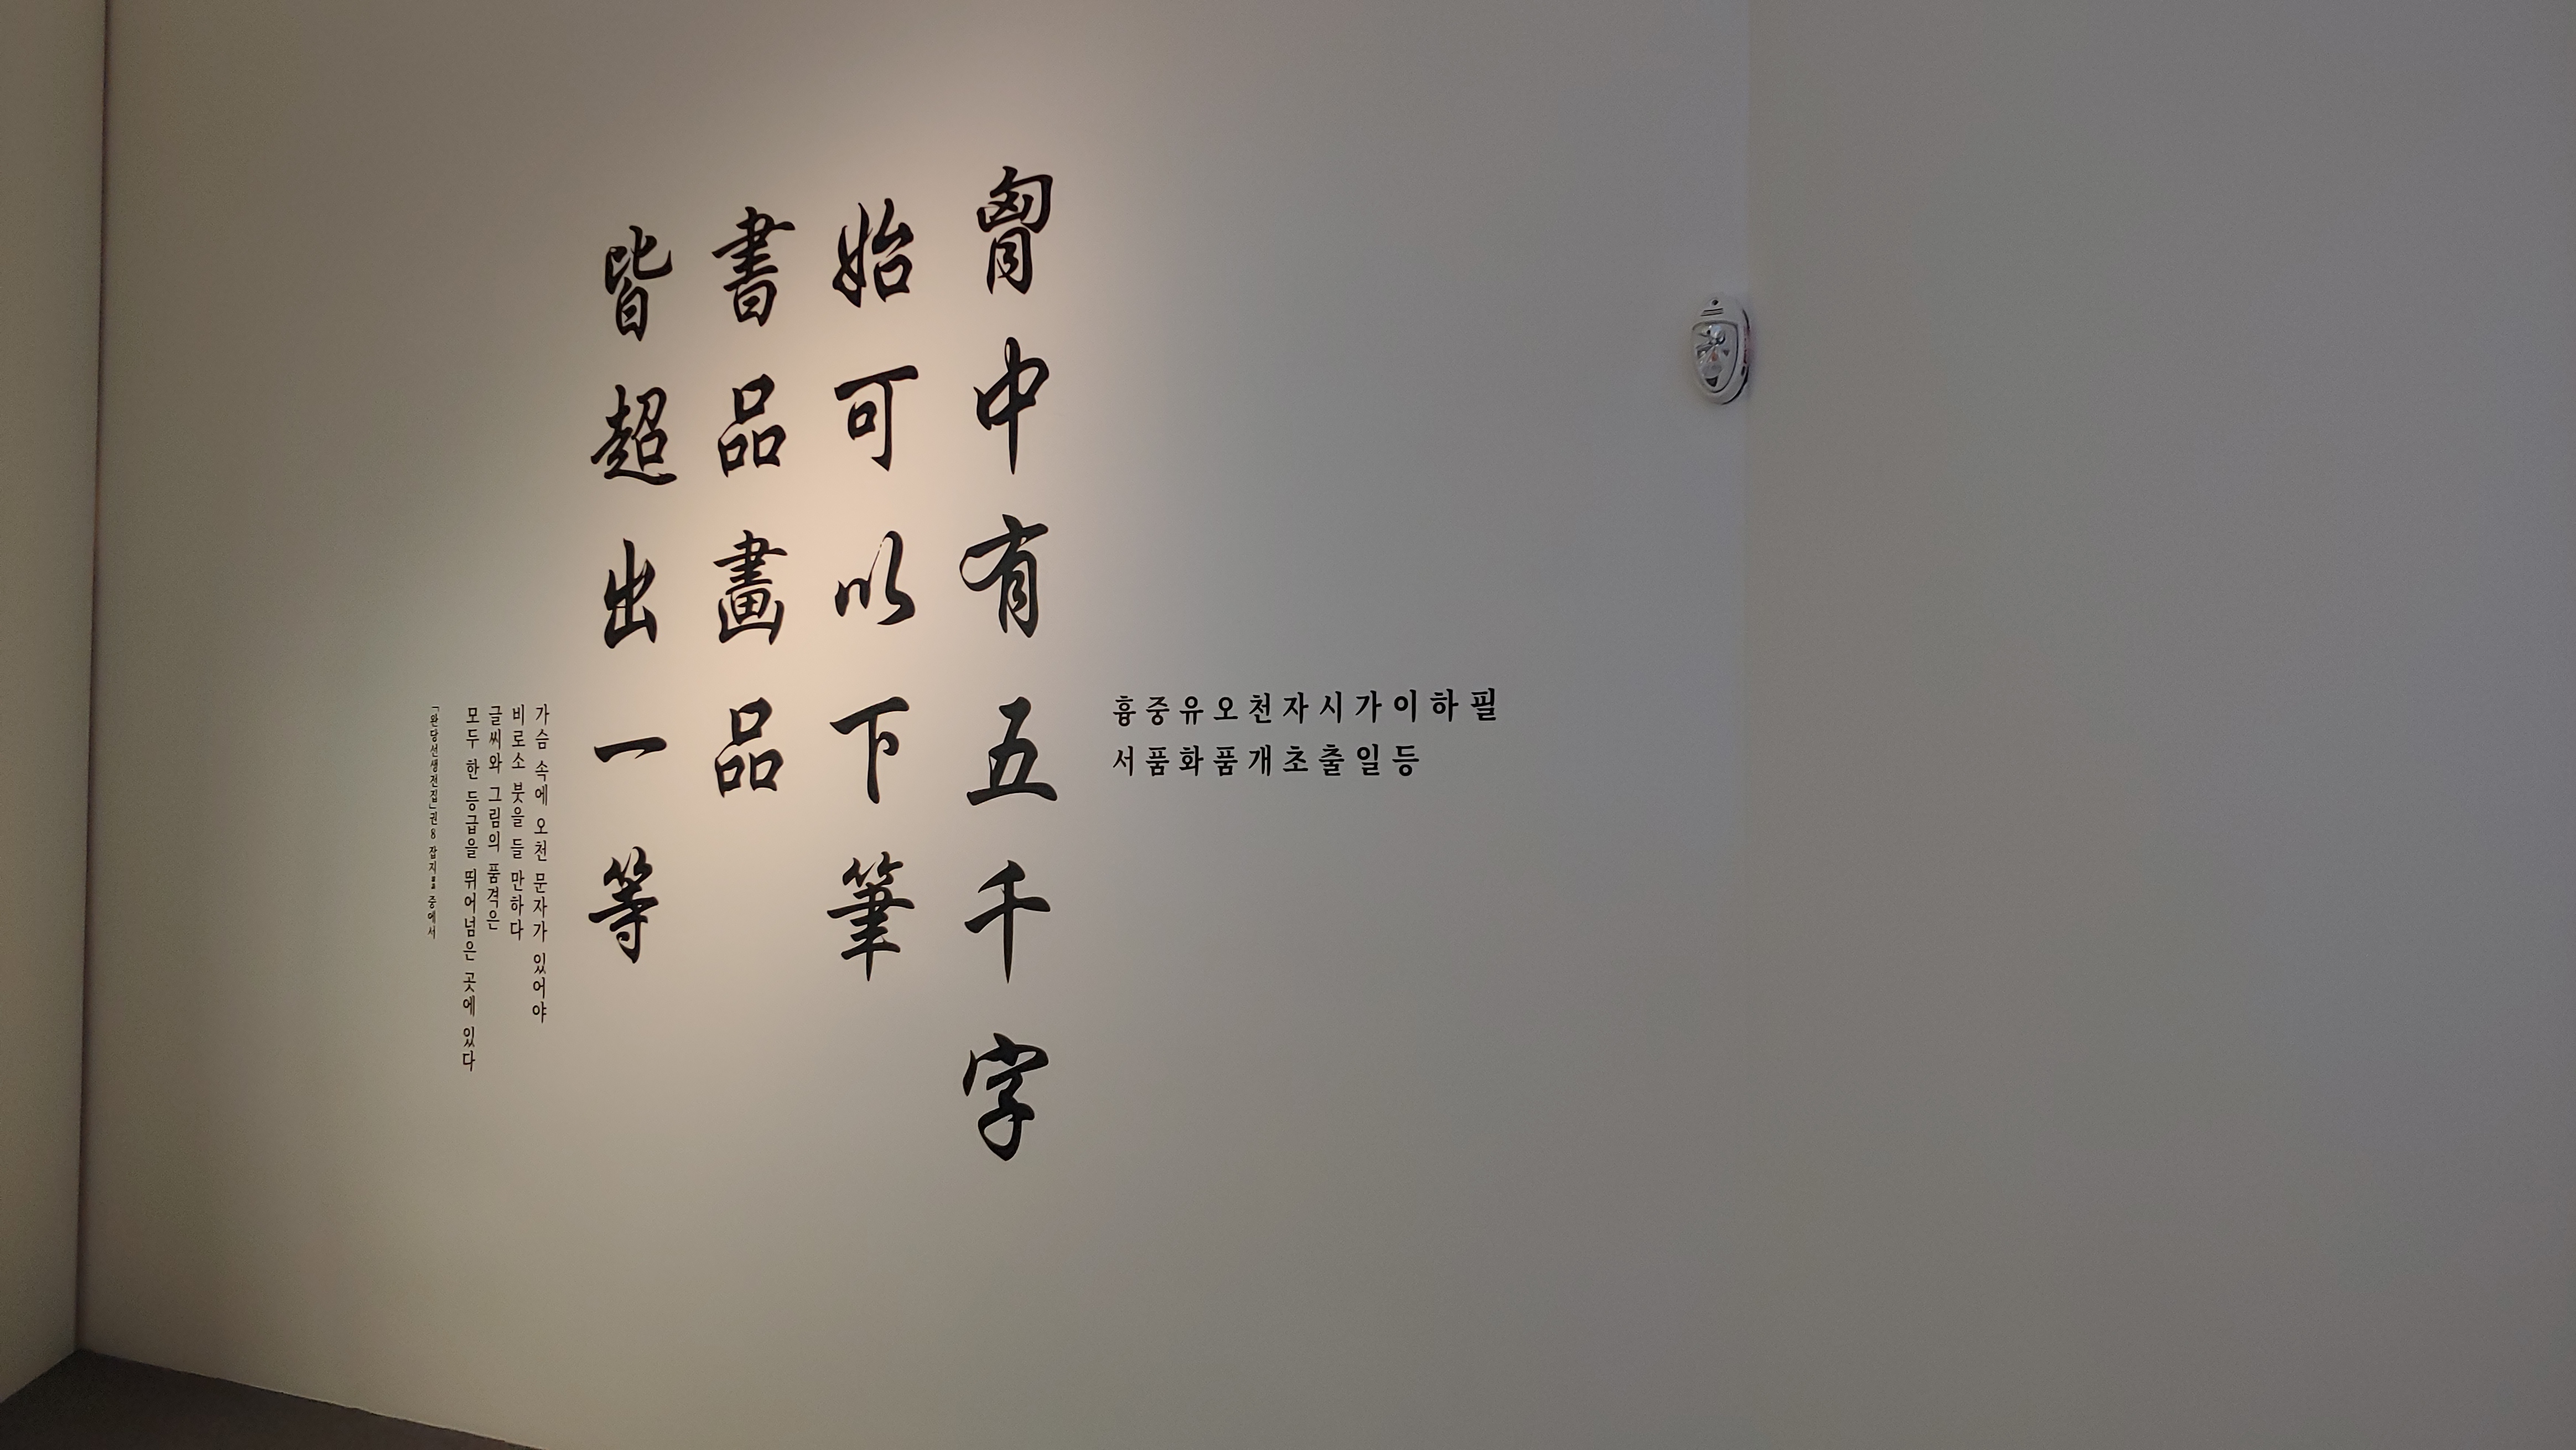 흉중유오천자시가이하필
서품화품개초출일등
胷中有五千字
始可以下筆
書品畵品
皆超出一等
가슴 속에 오천 문자가 있어야
비로소 붓을 들 만하다
글씨와 그림의 품격은
모두 한 등급을 뛰어넘은 곳에 있다
「완당선생전집」권8 잡지 중에서